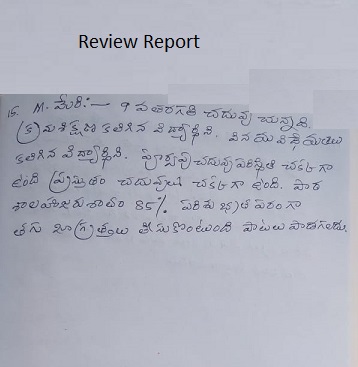 Review Report
15. M. మేరి:- 9 వ తరగతి చదువు చున్నది.
క్రమశిక్షణ కలిగిన విద్యార్థిని. వినయ విధేయతలు
కలిగిన విద్యార్థిని. పూర్వపు చదువు పరిస్థితి చక్కగా
ఉంది ప్రస్తుతం చదువులో చక్కగా ఉంది. పాఠ
శాల హాజరు శాతం 85% పరిశుభ్రత పరంగా
తగు జాగ్రత్తలు తీసుకొంటుంది పాటలు పాడగలదు.